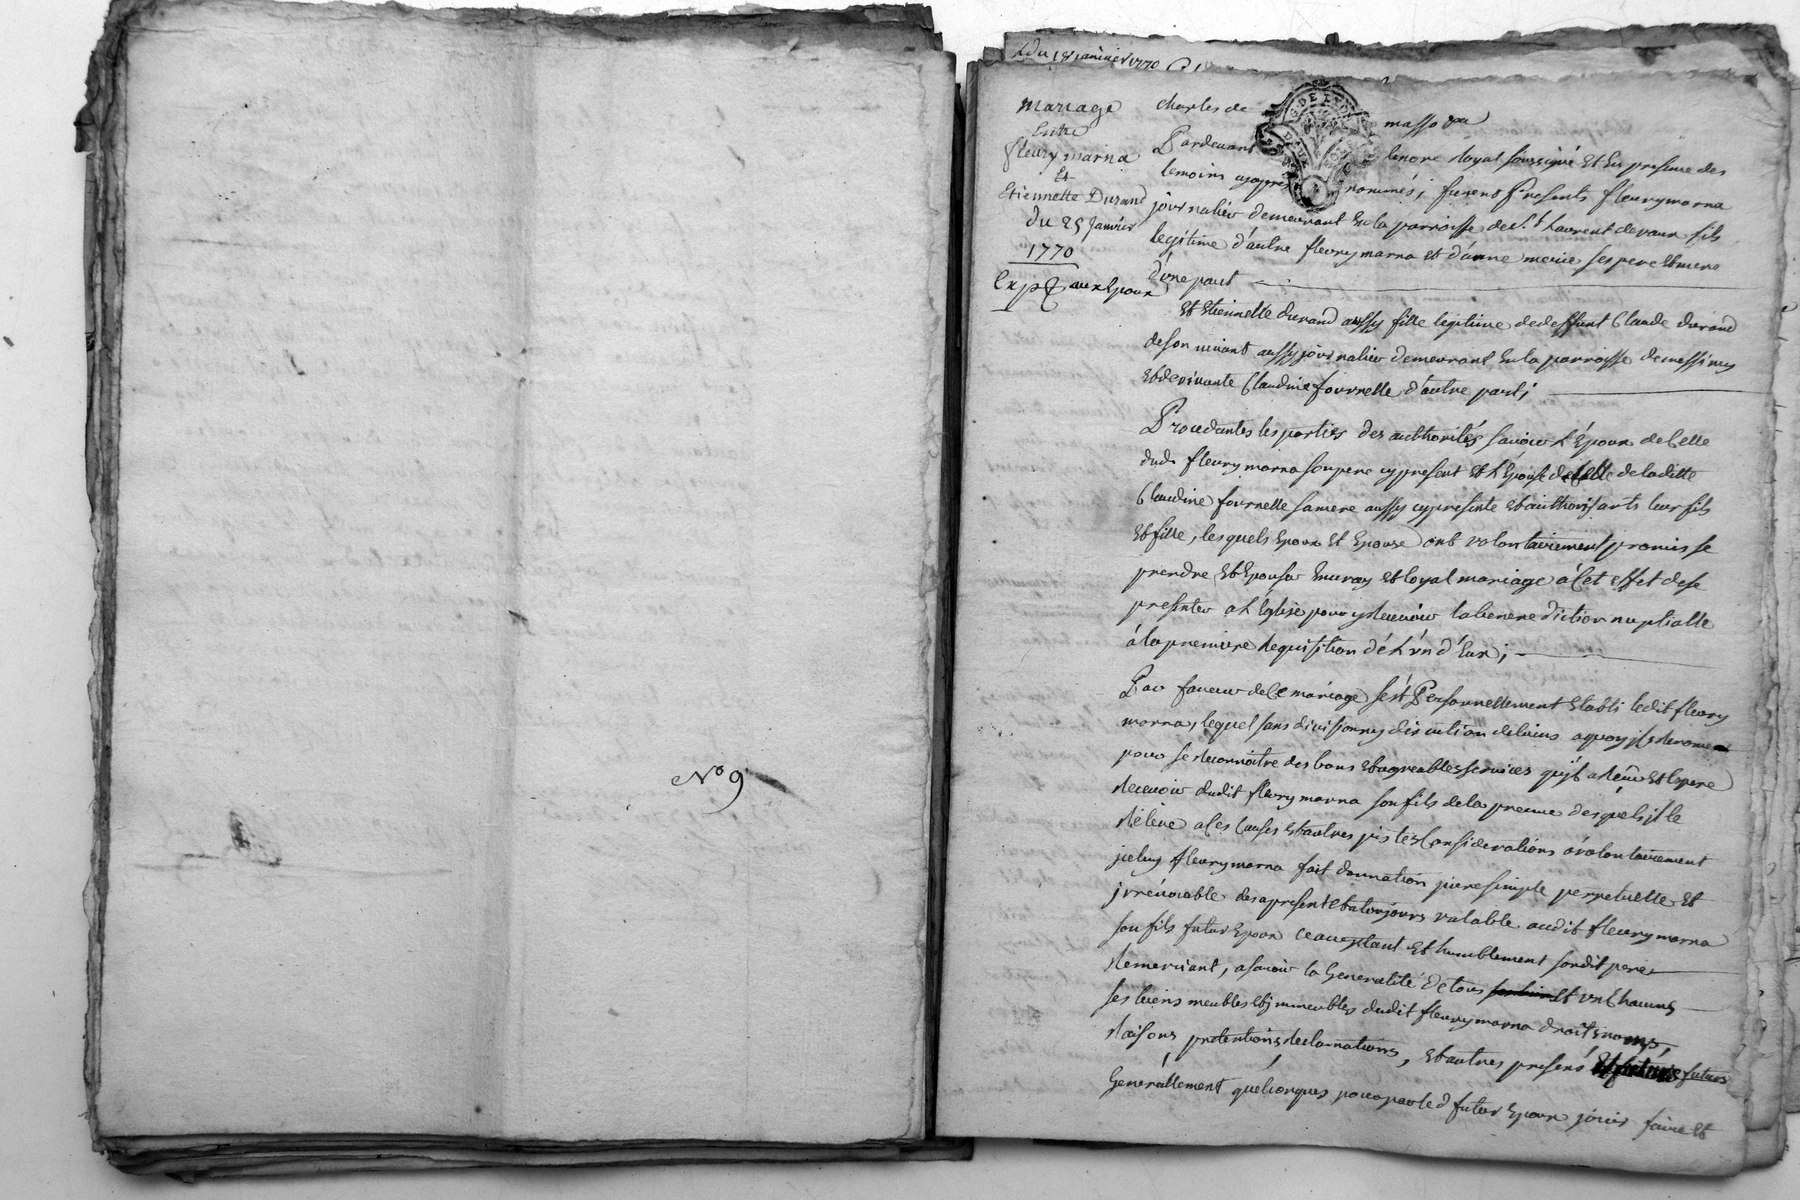 No 9
du 18 janvier 1770
mariage
Entre
fleury marna
Et
Etiennette Durand
du 25 Janvier
1770
Exp aux Epoux
charles de masso
Pardevant le nore Royal soussigné Et En presence des
temoins cyapres nommés; furent Presents fleury marna
journalier demeurant En la parroisse de St Laurent devaux fils
legitime d'autre fleury marna et d'anne meire ses pere Et mere
d'une part
Et Etiennette durand aussy fille legitime de deffunt Claude durand
de son vivant aussy journalier demeurant En la parroisse de messimy
Et de vivante Claudine fournelle d'autre part;
Procedantes les parties des authorités savoir L'Epoux de Celle
dud. fleury marna son pere cy present et L'Epouse de Celle de laditte
Claudine fournelle sa mere aussy cy presente et authorisants leur fils
Et fille, lesquels Epoux Et Epouse ont volontairement promis se
prendre Et Epouser En vray et loyal mariage à Cet effet de se
presenter a L'Eglise pour y Recevoir la benediction nuptialle
à la premiere Requisition dé L'un d'Eux;
Par faveur de Ce mariage s'est Personnellement Etabli ledit fleury
marna, lequel sans division ny discution de biens a quoy il Renonce
pour se Reconnoitre des bons Et agreables services qu'il a Reçu et Espere
Recevoir dudit fleury marna son fils de la preuve desquels il le
Réleve a Ces Causes Et autres justes Considerations a volontairement
iceluy fleury marna fait donnation pure simple perpetuelle Et
irrévocable des apresent Et a toujours valable audit fleury marna
son fils futur Epoux ce acceptant et humblement sondit pere
Remerciant, a savoir la Generalité de tous Et un Chacuns
ses biens meubles Et immeubles dudit fleury marna droits noms,
Raisons pretentions Reclamations, Et autres presens futurs
Generallement quelconques pour par led futur Epoux jouir faire Et